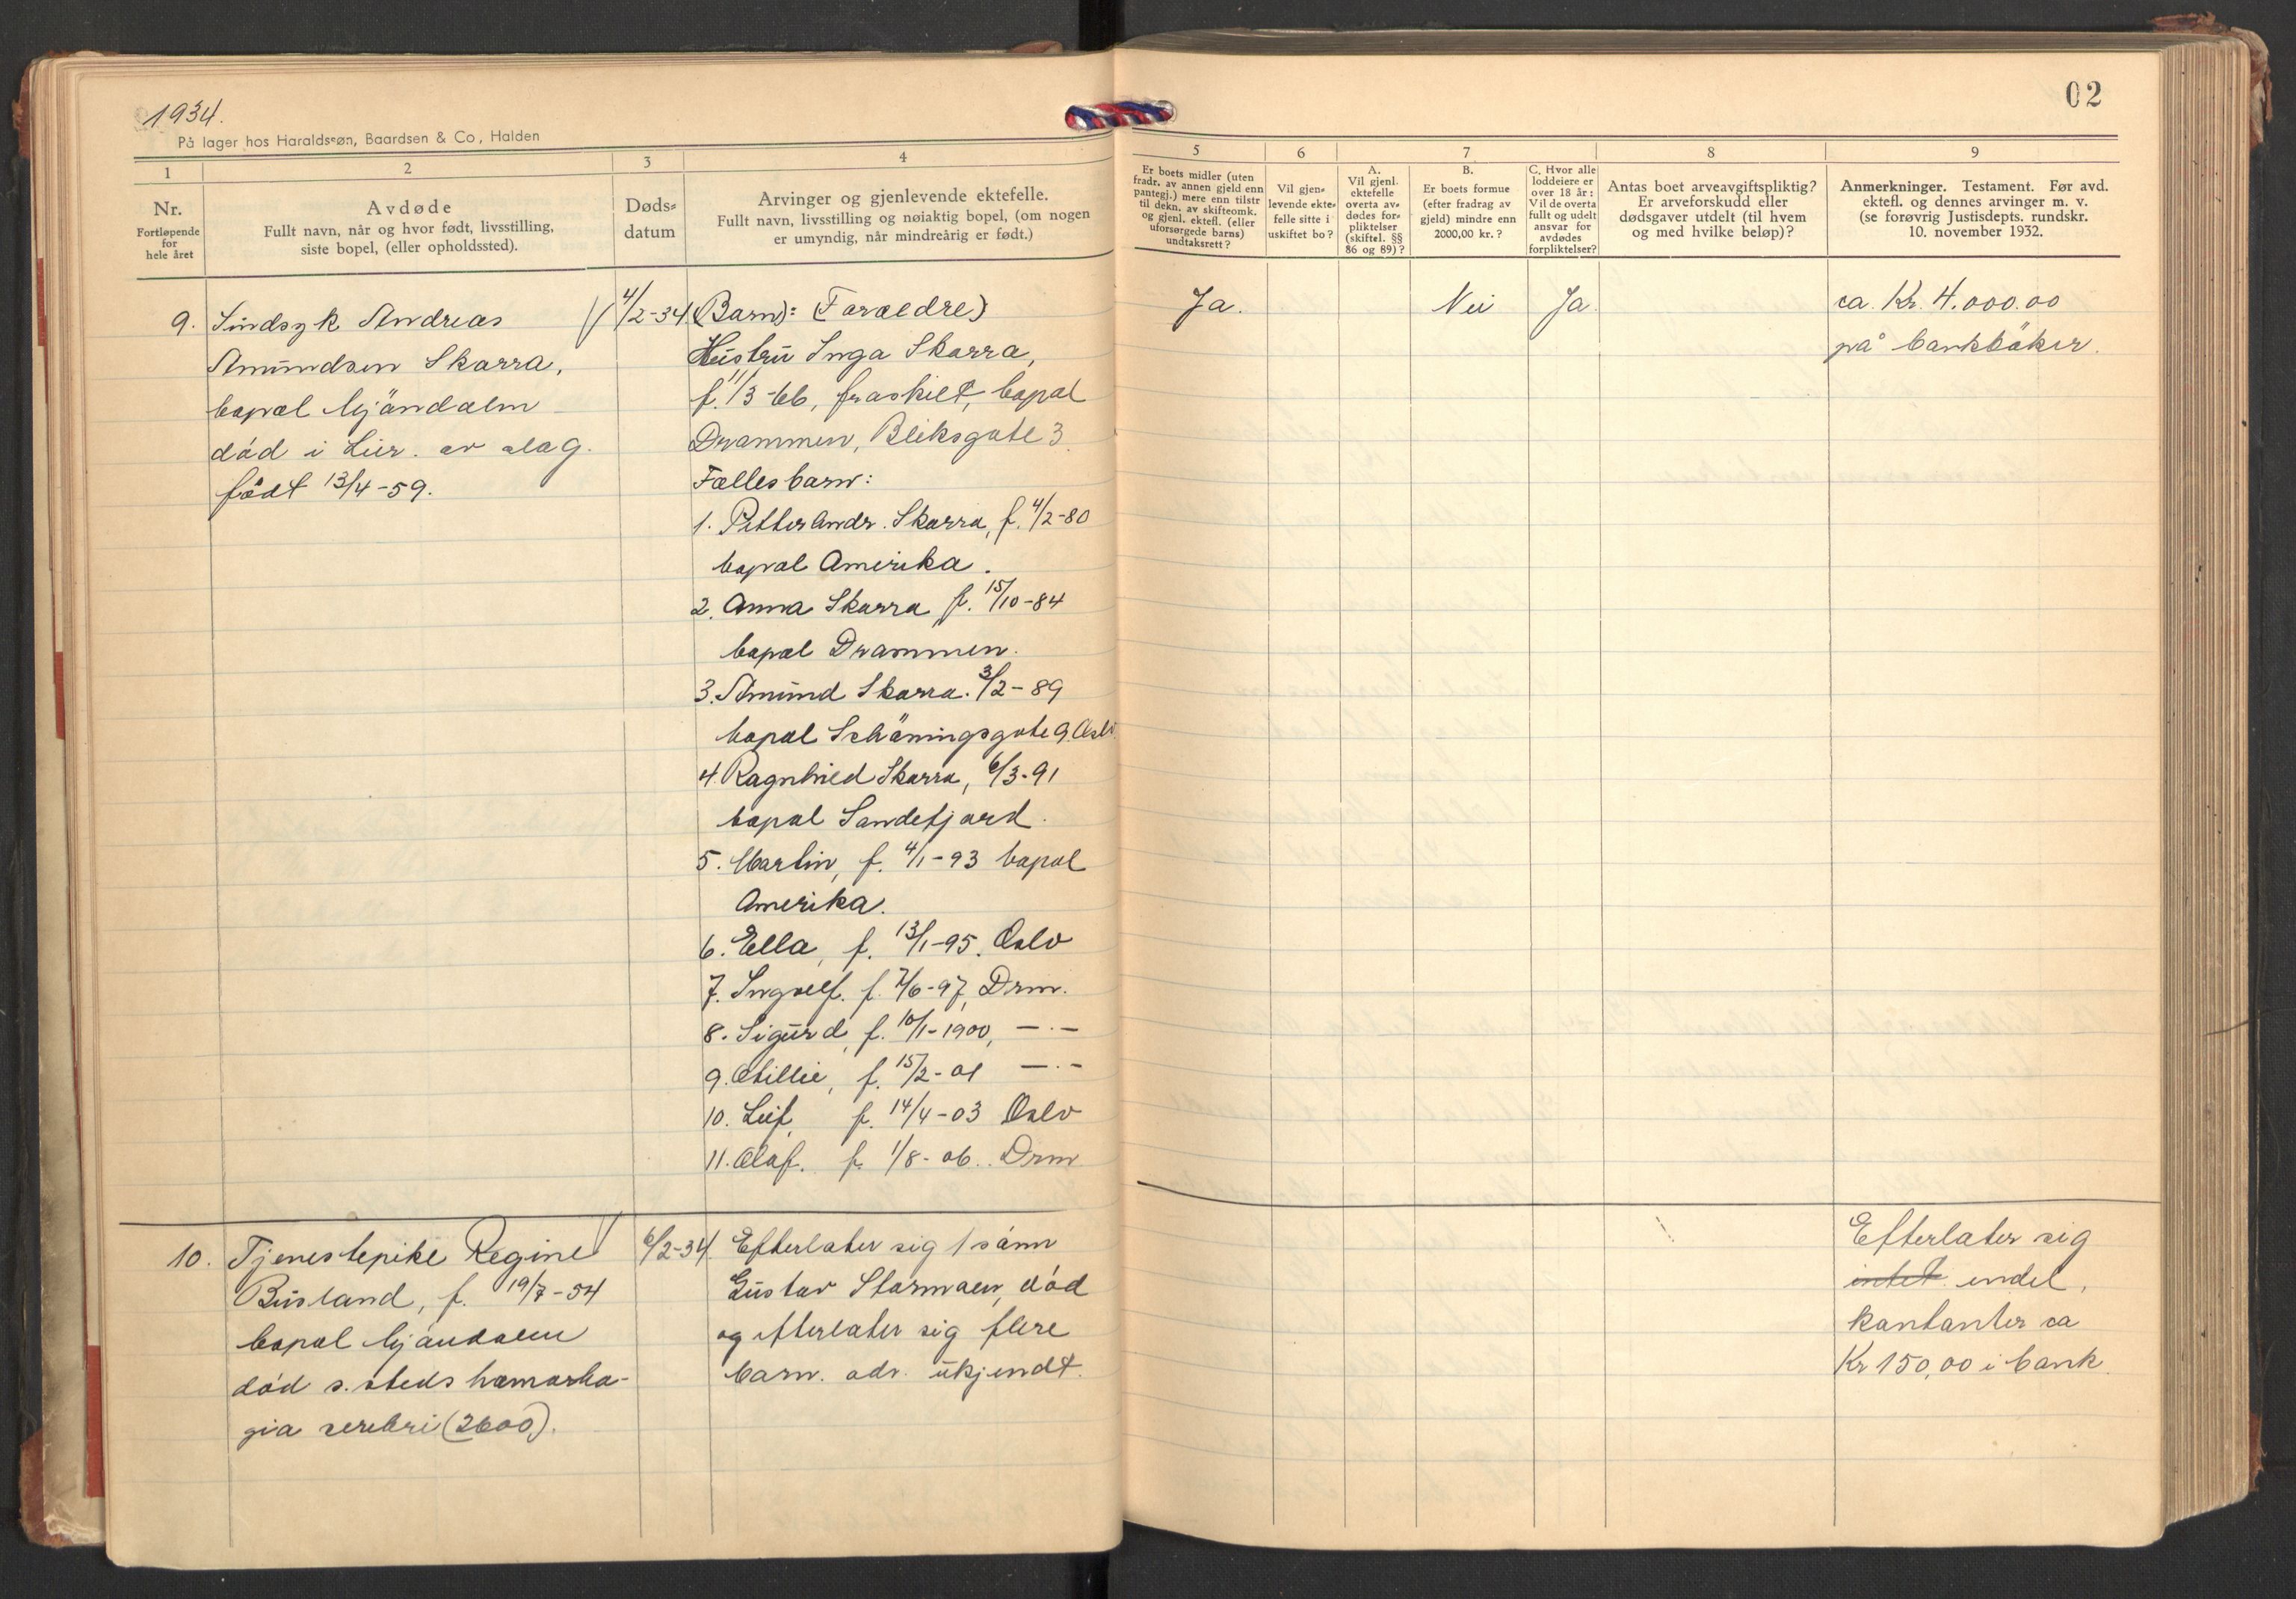 1934.
På lager hos Haraldssøn, Baardsen & Co, Halden
1
2
3
4
Nr.
Fortløpende
for
hele året
Avdøde
Fullt navn, når og hvor født, livsstilling,
siste bopel, (eller opholdssted).
Døds-
datum
Arvinger og gjenlevende ektefelle.
Fullt navn, livsstilling og nøiaktig bopel, (om nogen
er umyndig, når mindreårig er født.)
9.
Sindsyk Andreas
Amundsen Skarra,
bopæl Mjöndalen
död i Lier. av slag.
född 13/4-59.
4/2-34
(Barn): (Foraeldre)
Hustru Inga Skarra,
f. 11/3-66, fraskilt, bopal
Drammen, Bleksgate 3
Fælles barn:
1. Petter Andr. Skarra, f. 4/2-80
bopal Amerika.
2. Anna Skarra f. 15/10-84
bopal Drammen.
3. Amund Skarra. 3/2-89
bopal Schöningsgate 9. Oslo
4 Ragnhild Skarra, 6/3-91
bopal Sandefjord.
5. Martin, f. 4/1-93 bopal
Amerika.
6. Ella, f. 13/1-95. Oslo
7. Ingolf. f. 7/6-97, Drm.
8. Sigurd, f. 10/1-1900, -.-
9. Otillie, f. 15/2-01 -.-
10. Leif, f. 14/4-03 Oslo
11. Olaf. f. 1/8-06.. Drm
10.
Tjenestepike Regine
Busland, f. 19/7-54
bopal Mjöndalen
död s. steds hæmorha-
gia serebri (2600).
6/2-34
Efterlater sig 1 sönn
Gustav Stormoen, död
og efterlater sig flere
barn. adr. ukjendt.
02
5
6
7
8
9
Er boets midler (uten
fradr. av annen gjeld enn
pantegj.) mere enn tilstr
til dekn. av skifteomk.
og gjenl. ektefl. (eller
uforsørgede barns)
undtaksrett?
Vil gjen-
levende ekte-
felle sitte i
uskiftet bo?
A.
Vil gjenl.
ektefelle
overta av-
dødes for-
pliktelser
(skiftel. §§
86 og 89)?
B.
Er boets formue
(efter fradrag av
gjeld) mindre enn
2000,00 kr.?
C. Hvor alle
loddeiere er
over 18 år:
Vil de overta
fullt og udelt
ansvar for
avdødes
forpliktelser?
Antas boet arveavgiftspliktig?
Er arveforskudd eller
dødsgaver utdelt (til hvem
og med hvilke beløp)?
Anmerkninger. Testament. Før avd.
ektefl. og dennes arvinger m. v.
(se forøvrig Justisdepts. rundskr.
10. november 1932.
Ja.
Nei
Ja.
ca. Kr. 4.000.00
på bankböker.
Efterlater sig
intet endel,
kontanter ca
Kr 150,00 i bank.